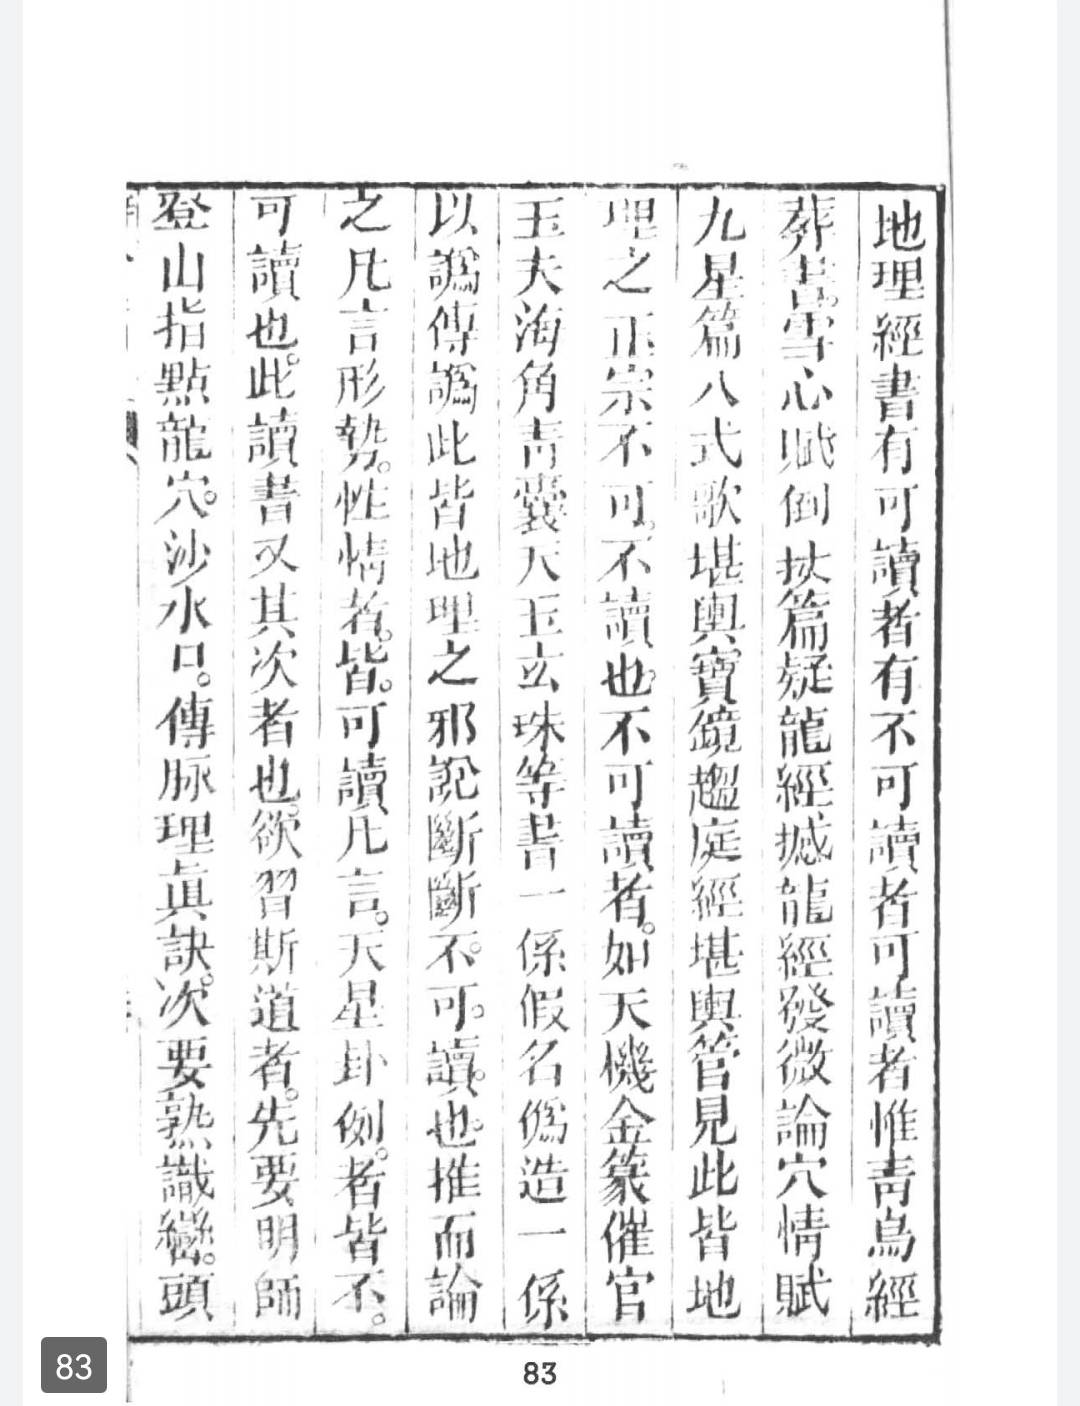 地理經書有可讀者有不可讀者可讀者惟靑烏經
葬書雪心賦倒杖篇疑龍經撼龍經發微論穴情賦
九星篇八式歌堪輿寶鏡趨庭經堪輿管見此皆地
理之正宗不可不讀也不可讀者。如天機金篆催官
玉夫海角靑囊天玉玄珠等書一係假名僞造一係
以譌傳譌此皆地理之邪說斷斷不。可。讀。也。推而論
之凡言形勢。性情者。皆。可讀凡言。天星卦例。者皆不。
可讀也。此讀書又其次者也。欲習斯道者。先要明師
登山指點龍穴。沙水口。傳脉理眞訣。次要熟識巒。頭
83
83